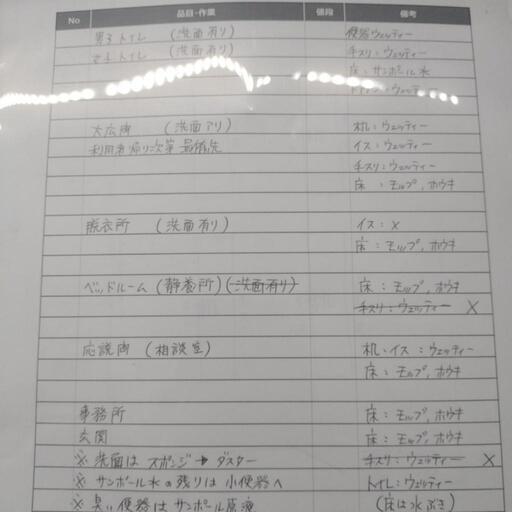 No 品目・作業 値段 備考
男子トイレ (洗面有り) 便器ウェッティー
女子トイレ (洗面有り) 手スリ:ウェッティー
床:サンポール水
ウェッティー
大広間 (洗面アリ) 机:ウェッティー
利用者帰り次第 最優先 イス:ウェッティー
手スリ:ウェッティー
床:モップ,ホウキ
脱衣所 (洗面有り) イス:×
床:モップ,ホウキ
ベッドルーム (静養所)(洗面有り) 床:モップ,ホウキ
手スリ:ウェッティー ×
応談間 (相談室) 机・イス:ウェッティー
床:モップ,ホウキ
事務所 床:モップ,ホウキ
玄関 床:モップ,ホウキ
※ 洗面は スポンジ→ダスター 手スリ:ウェッティー ×
※ サンポール水の残りは小便器へ トイレ:ウェッティー
※ 臭い便器はサンポール原液 (床は水ぶき)